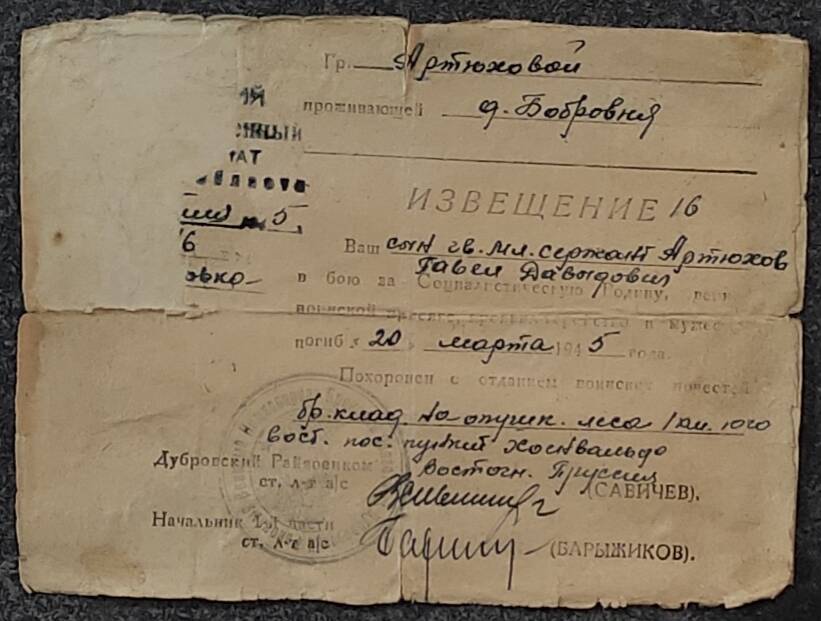 Гр. Артюховой
проживающей д. Бобровня
ИЙ
ННЫЙ
АТ
области
5
6
ько
ИЗВЕЩЕНИЕ 16
Ваш сын гв. мл. сержант Артюхов
Павел Давыдович
в бою за Социалистическую Родину,
воинской присяге, и мужес
погиб 20 марта 1945 года.
Похоронен с отданием воинских почестей
бр. клад. на опушк. леса 1 км. юго
вост. пос.
Восточн. Пруссия
Дубровский Райвоенком
ст. л-т а/с (САВИЧЕВ).
Начальник 1-й части
ст. л-т а/с (БАРЫЖИКОВ).